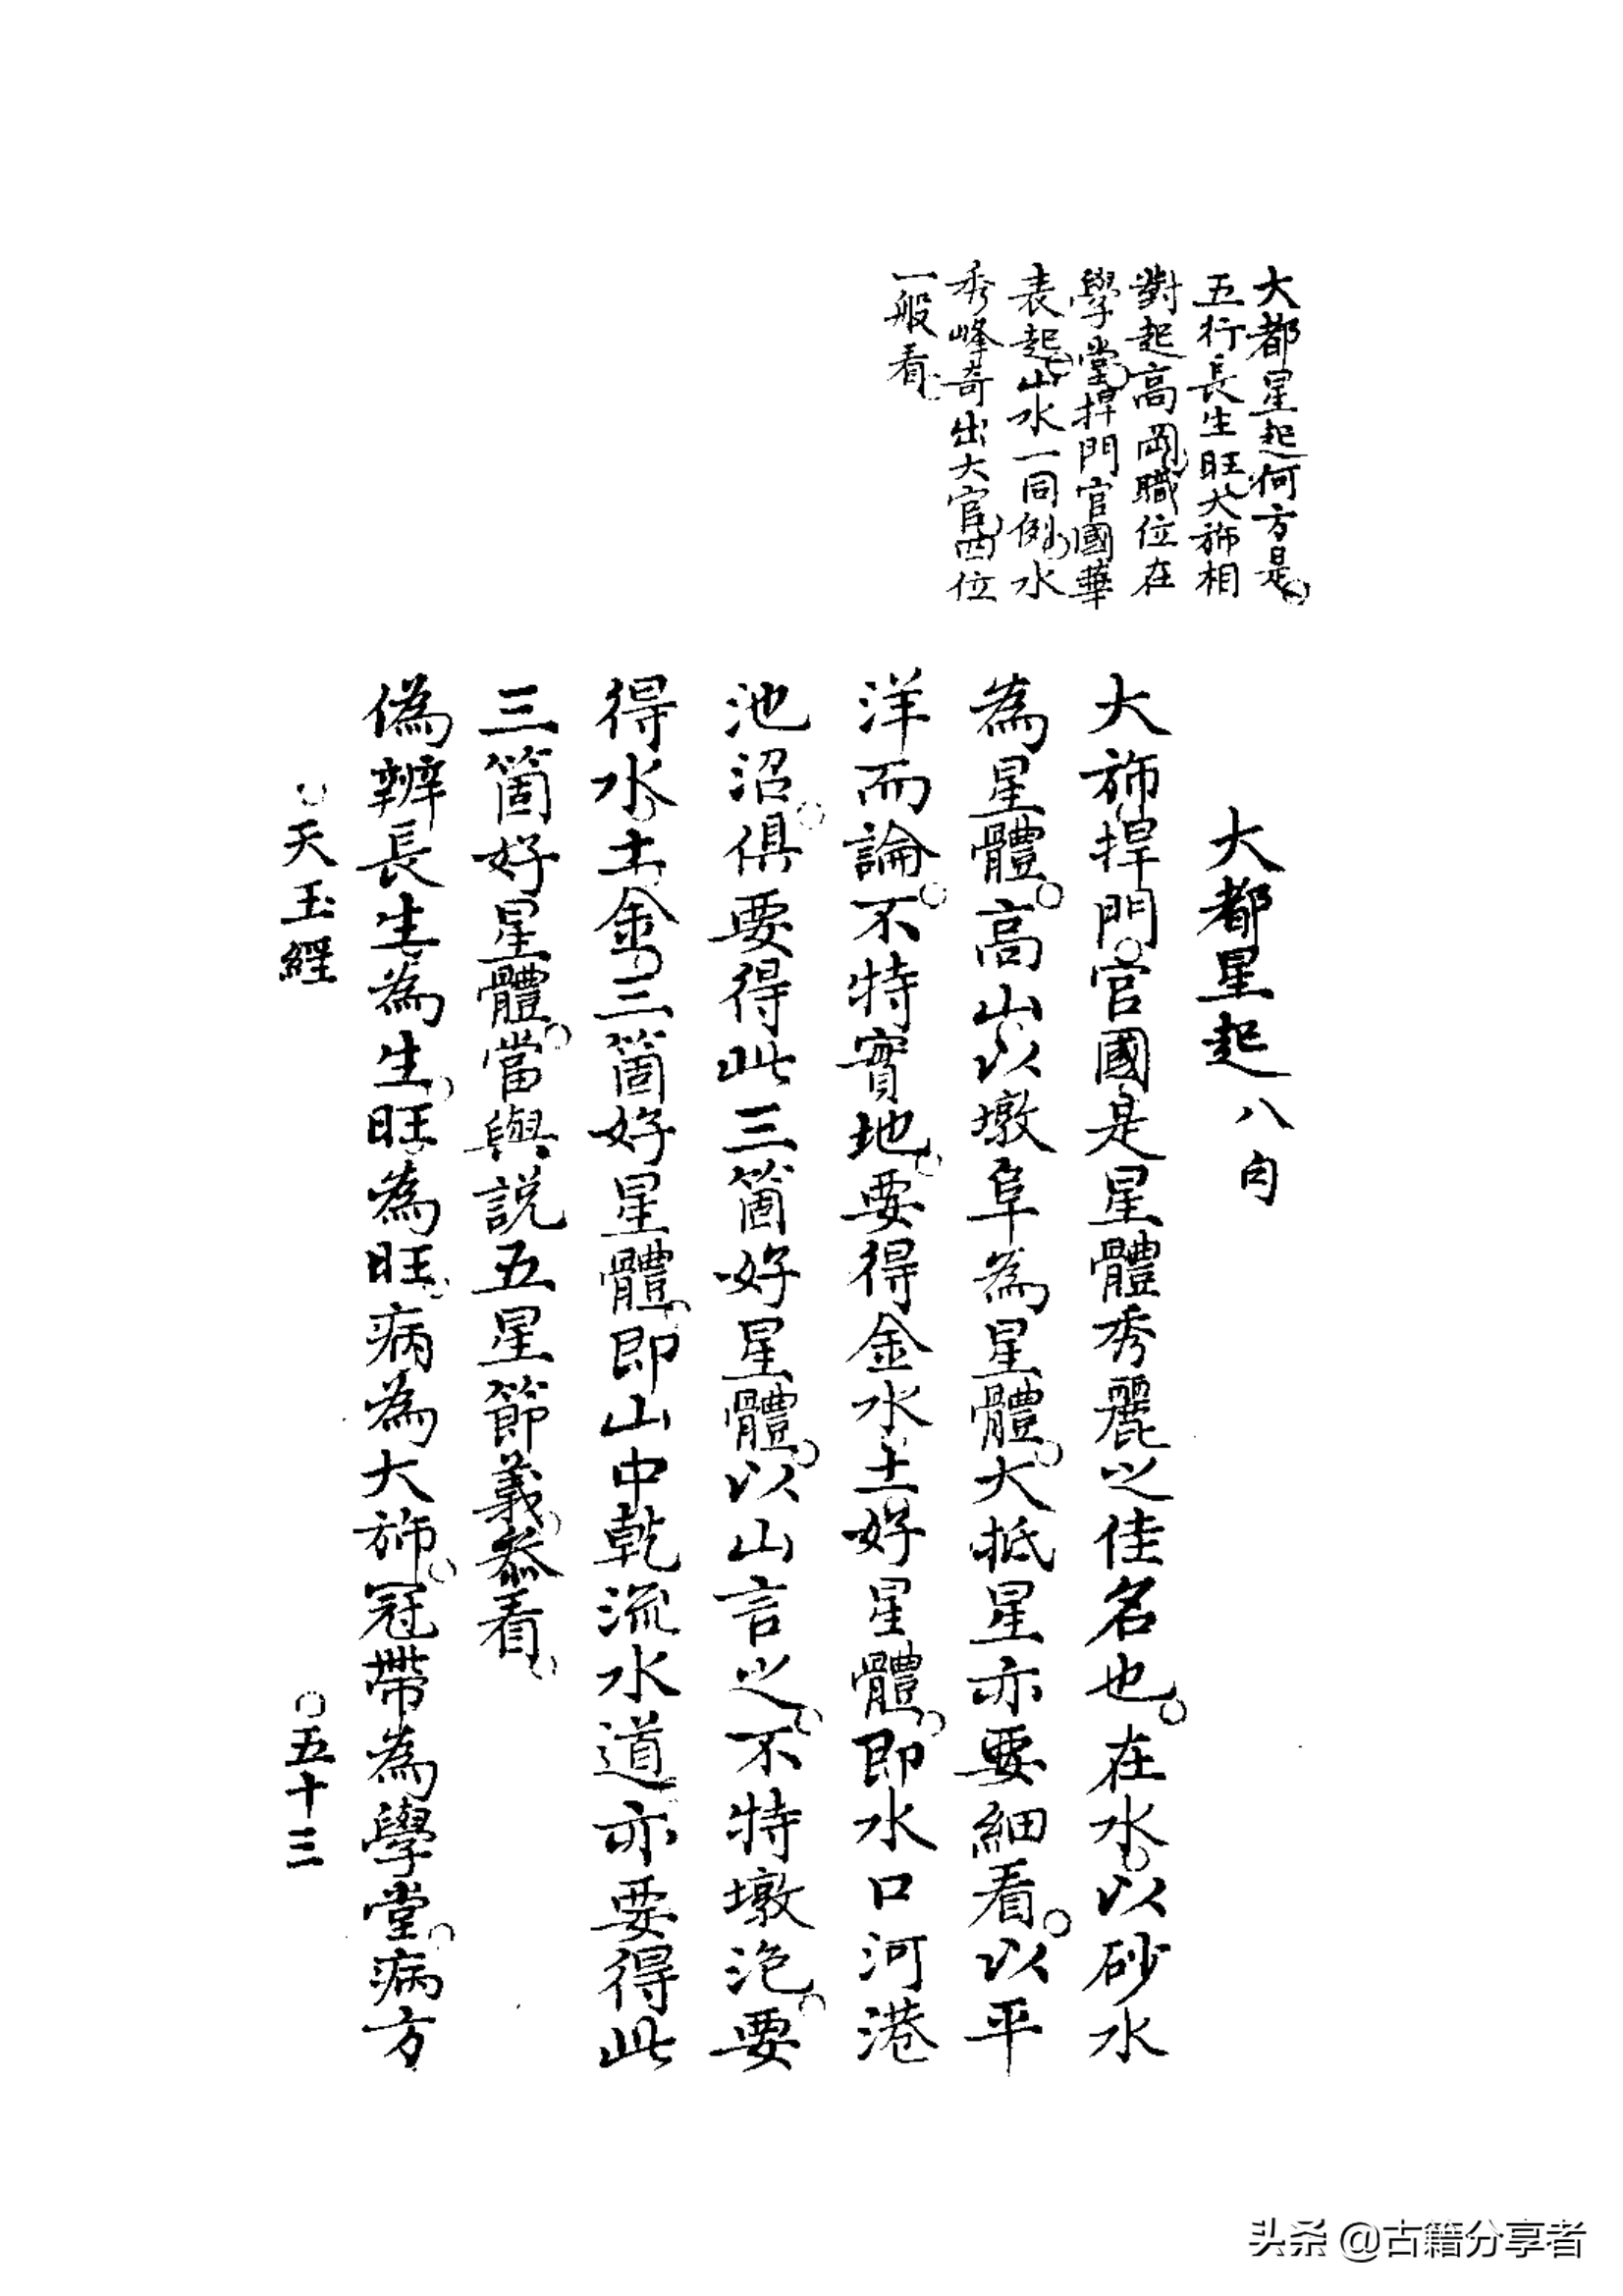 大都星起何方是。
五行長生旺大斾相
對起高岡職位在
學堂捍門官國華
表起山水一同例水
秀峰奇出大官四位
一般看。
大都星起八句
大斾捍門。官國是星體秀麗之佳名也。在水。以砂水
為星體。高山以墩阜為星體。大抵星亦要細看。以平
洋而論。不特實地。要得金水土好星體。即水口河港
池沼。俱要得此三箇好星體。以山言之。不特墩泡。要
得水。土。金。三箇好星體。即山中乾流水道亦要得此
三箇好星體。當與説五星節義叅看。
偽辨長生為生。旺為旺。病為大斾。冠帶為學堂。病方
○天玉經
○五十三
头条 @古籍分享者